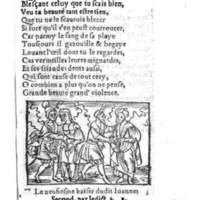 Blesçant celuy que tu sçais bien,
Veu ta beauté tant estre tien,
Que tu ne le sçaurois blecer
Si fort qu'il s'en peust courroucer,
Car parmy le sang de sa playe
Tousjours il grenouille & begaye
Louant l'œil dont tu le regardes,
Ces vermeilles leures mignardes,
Et ses dents aussi,
Qui sont cause de tout cecy,
O combien a plus qu'on ne pense,
Grande beauté grand' violence.
Le neufiesme baiser dudit Ioannes
Second, par ledict